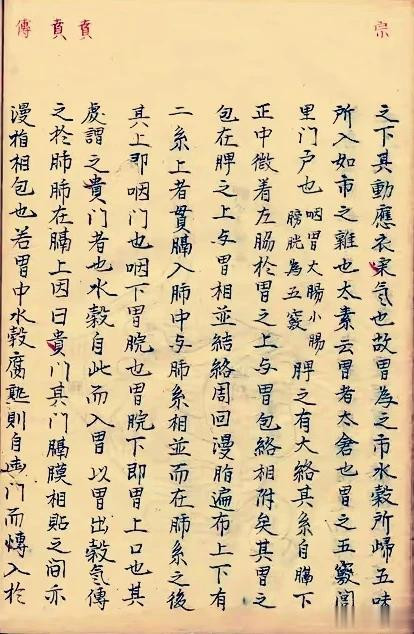 宗
賁
賁
傳
之下其動應衣柔氣也故胃為之市水穀所歸五味
所入如市之雜也太素云胃者太倉也胃之五竅閭
里门户也咽胃大腸小腸膀胱為五竅脾之有大絡其系自膈下
正中微着左脇於胃之上与胃包絡相附矣其胃之
包在脾之上与胃相並結絡周回漫脂遍布上下有
二系上者貫膈入肺中与肺系相並而在肺系之後
其上即咽门也咽下胃脘也胃脘下即胃上口也其
處謂之貴门者也水穀自此而入胃以胃出穀氣傳
之於肺肺在膈上因曰貴门其门膈膜相貼之間亦
漫脂相包也若胃中水穀腐熟則自幽门而慱入於